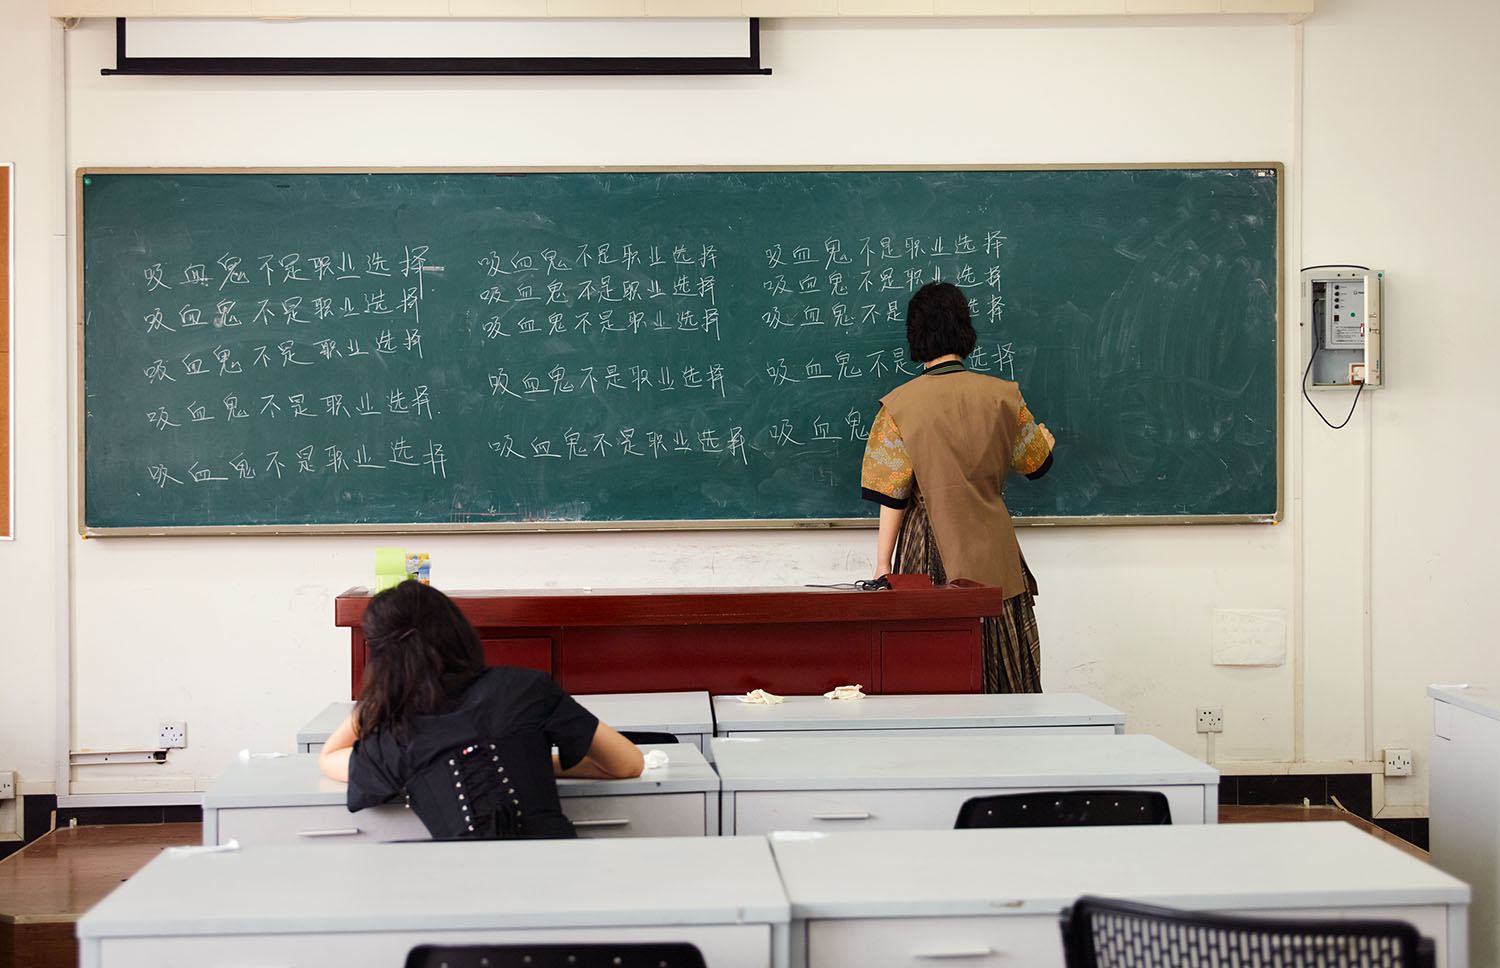 吸血鬼不是职业选择
吸血鬼不是职业选择
吸血鬼不是职业选择
吸血鬼不是职业选择
吸血鬼不是职业选择
吸血鬼不是职业选择
吸血鬼不是职业选择
吸血鬼不是职业选择
吸血鬼不是职业选择
吸血鬼不是职业选择
吸血鬼不是职业选择
吸血鬼不是职业选择
吸血鬼不是 选择
吸血鬼不是 选择
吸血鬼